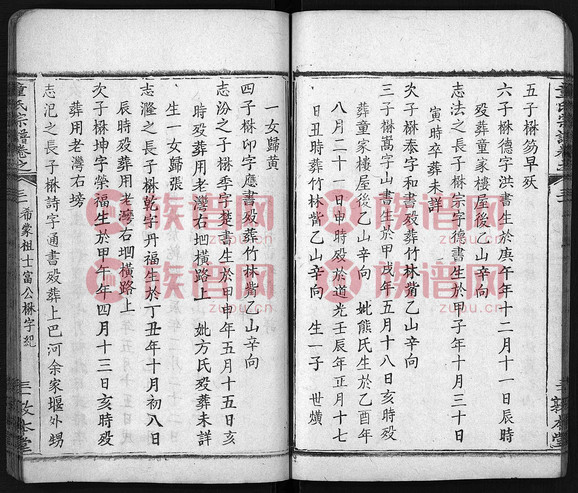 五子楙芴早殀
六子楙德字洪書生於庚午年十二月十一日辰時
殁葬童家樓屋後乙山辛向
志法之長子楙宗字德書生於甲子年十月三十日
寅時卒葬未詳
次子楙泰字和書殁葬竹林嘴乙山辛向
三子楙嵩字山書生於甲戌年五月十八日亥時殁
葬童家樓屋後乙山辛向 妣熊氏生於乙酉年
八月二十一日申時殁於道光壬辰年正月十七
日丑時葬竹林嘴乙山辛向 生一子 世爀
童氏宗譜卷之
敦本堂
一女歸黄
四子楙印字應書殁葬竹林嘴乙山辛向
志汾之子楙季字楚書生於甲年五月十五日亥
時殁葬用老灣右垇橫路上 妣方氏殁葬未詳
生一女歸張
志瀊之長子楙乾字丹福生於丁丑年十月初八日
辰時殁葬用老灣右垇橫路上
次子楙坤字榮福生於甲午年四月十三日亥時殁
葬用老灣右塝
志汜之長子楙詩字通書殁葬上巴河余家堰外甥
童氏宗譜卷之
希蒙祖士富公楙字紀
三 敦本堂
族谱网
zupu.cn